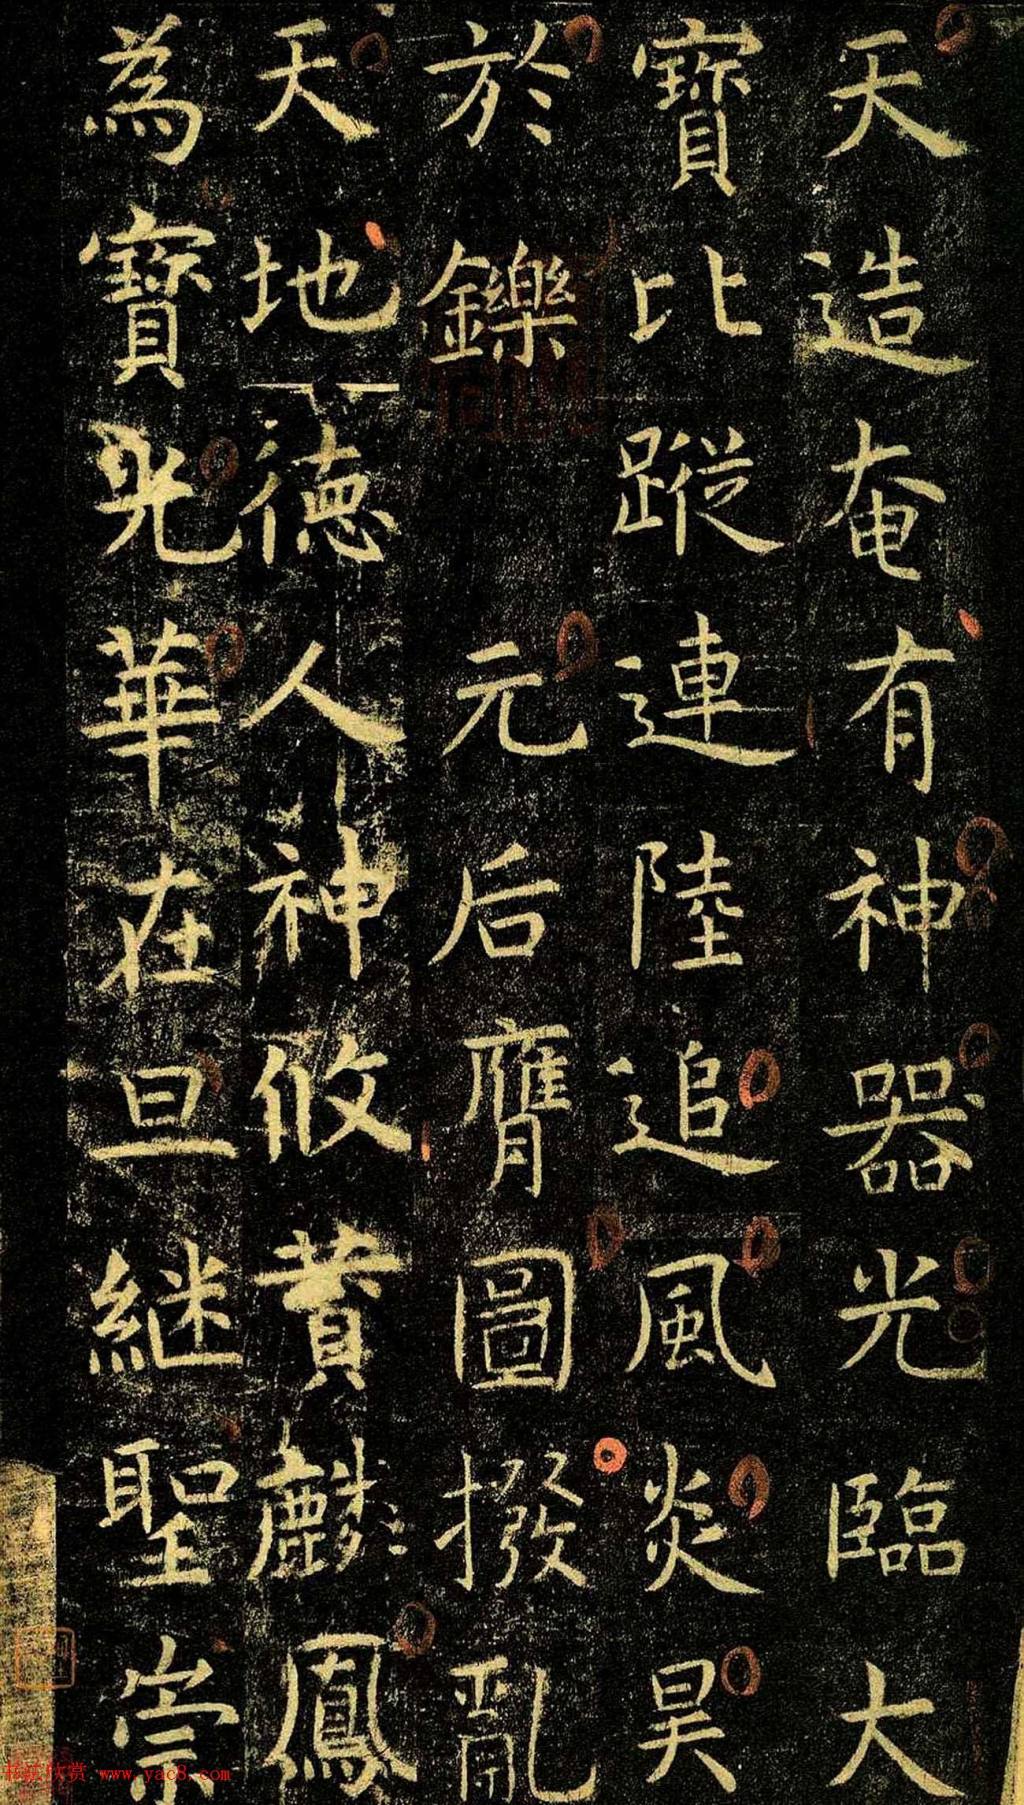 天造奄有神器光臨大
寶比蹤連陸追風炎昊
於鑠 元后膺圖撥亂
天地德人神攸賛麟鳳
為寶光華在旦継聖崇
书法欣赏 www.yac8.com